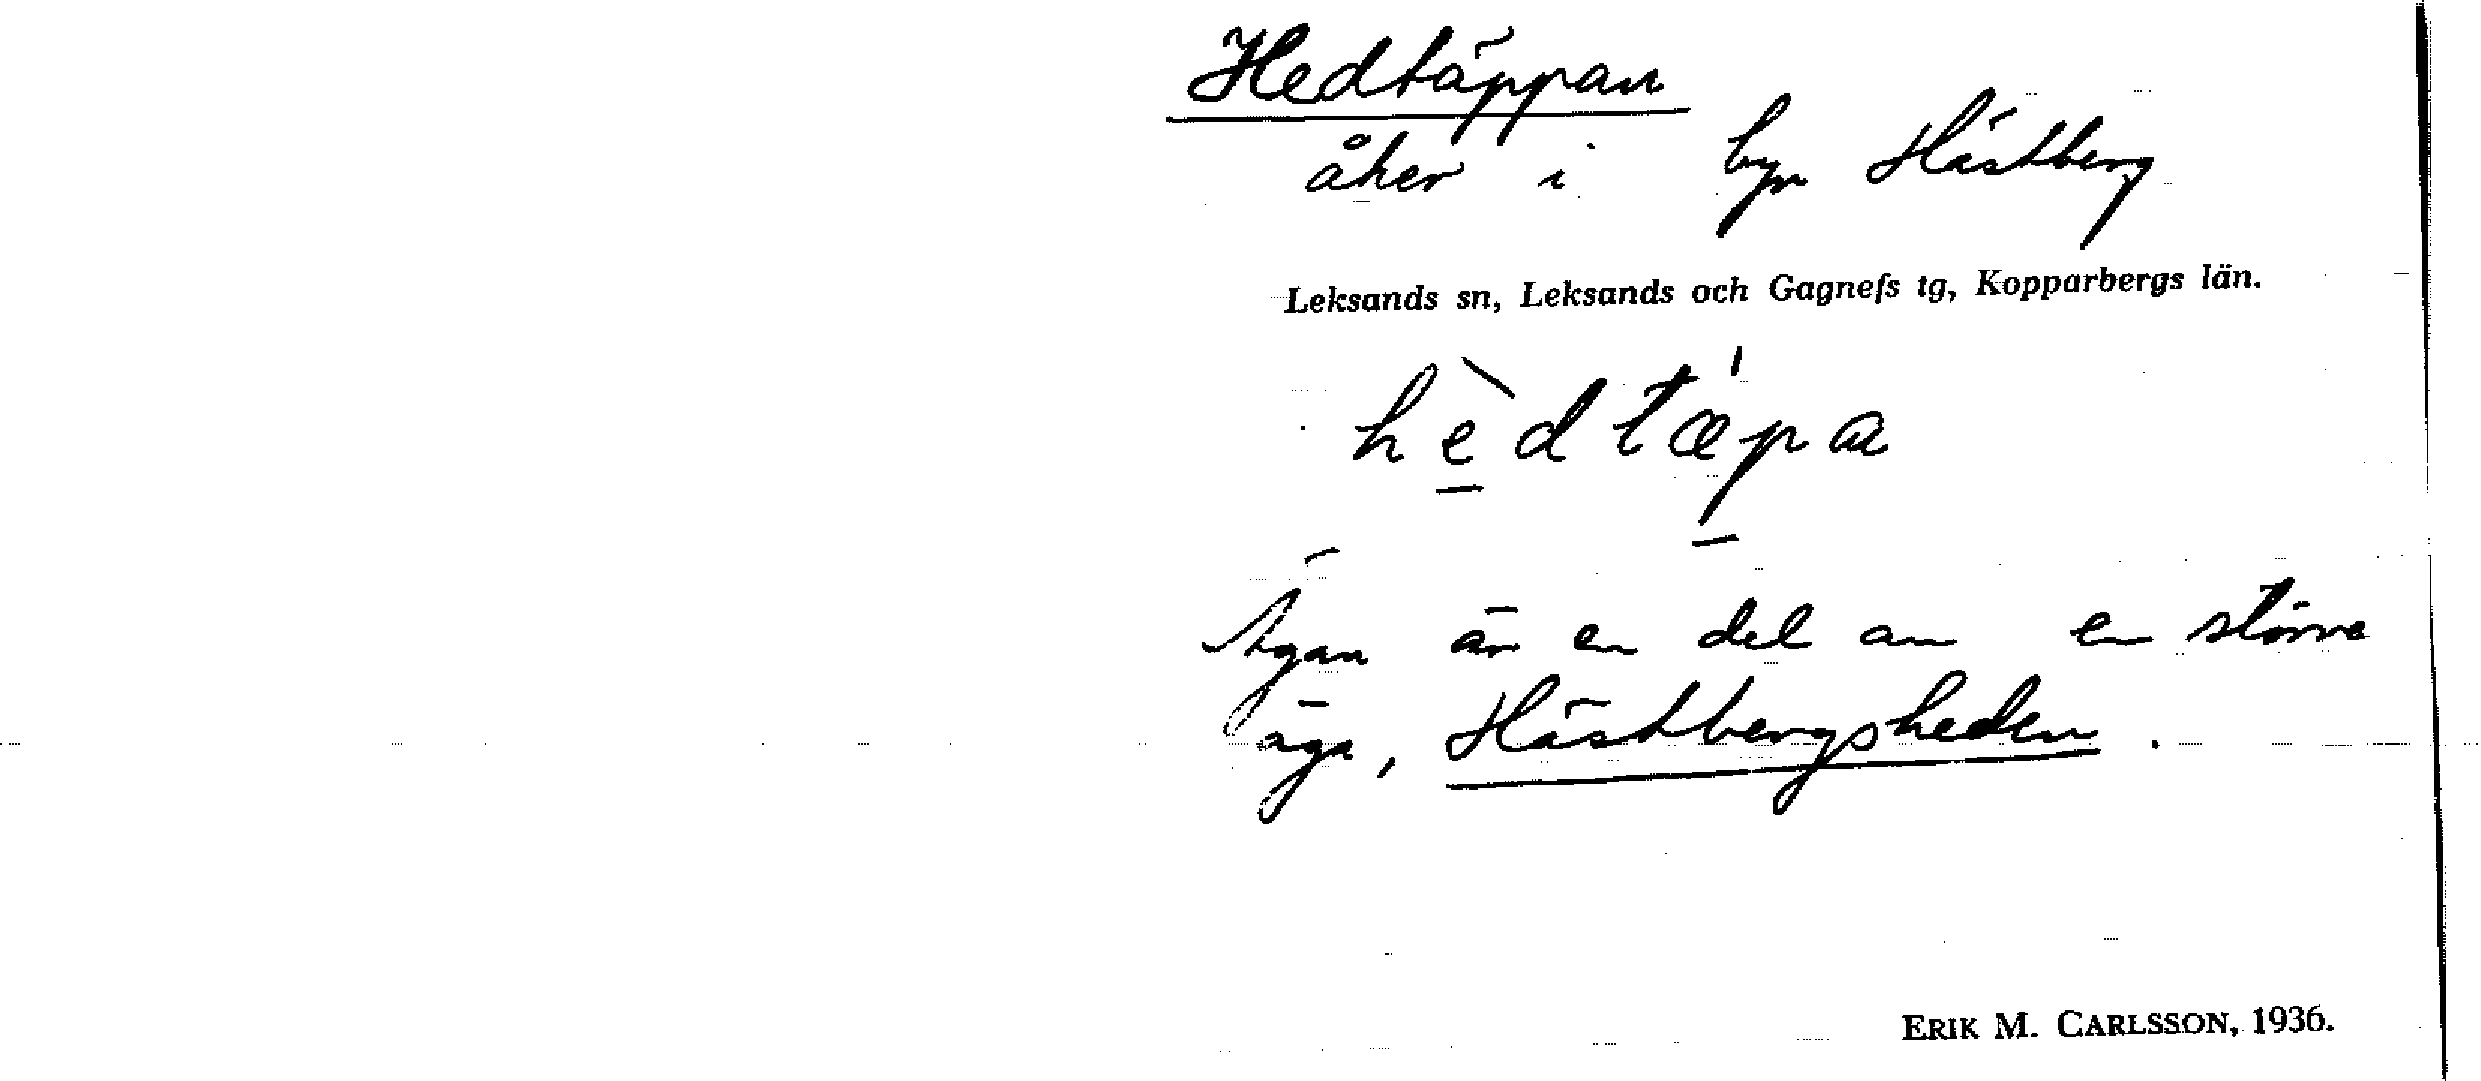 Hedtäppan
åker i byn Hästberg
Leksands sn, Leksands och Gagnefs tg, Kopparbergs län.
hèdtæpa
Ägan är en del av en större
äga, Hästbergsheden.
ERIK M. CARLSSON, 1936.